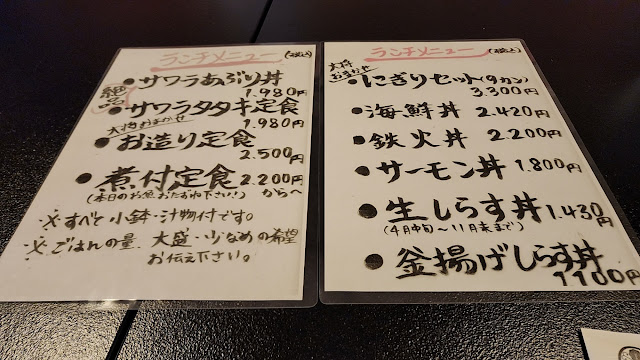 ランチメニュー(税込)
絶品
・サワラあぶり丼
1.980円
・サワラタタキ定食
1.980円
大将おまかせ
・お造り定食
2.500円
・煮付定食 2.200円
(本日のお魚おたずね下さい!) からへ
※すべて小鉢・汁物付です。
※ごはんの量 大盛・少なめの希望
お伝え下さい。
ランチメニュー(税込)
大将おまかせ
・にぎりセット(9カン)
3.300円
・海鮮丼 2.420円
・鉄火丼 2.200円
・サーモン丼 1.800円
・生しらす丼 1.430円
(4月中旬〜11月末まで)
・釜揚げしらす丼
1100円